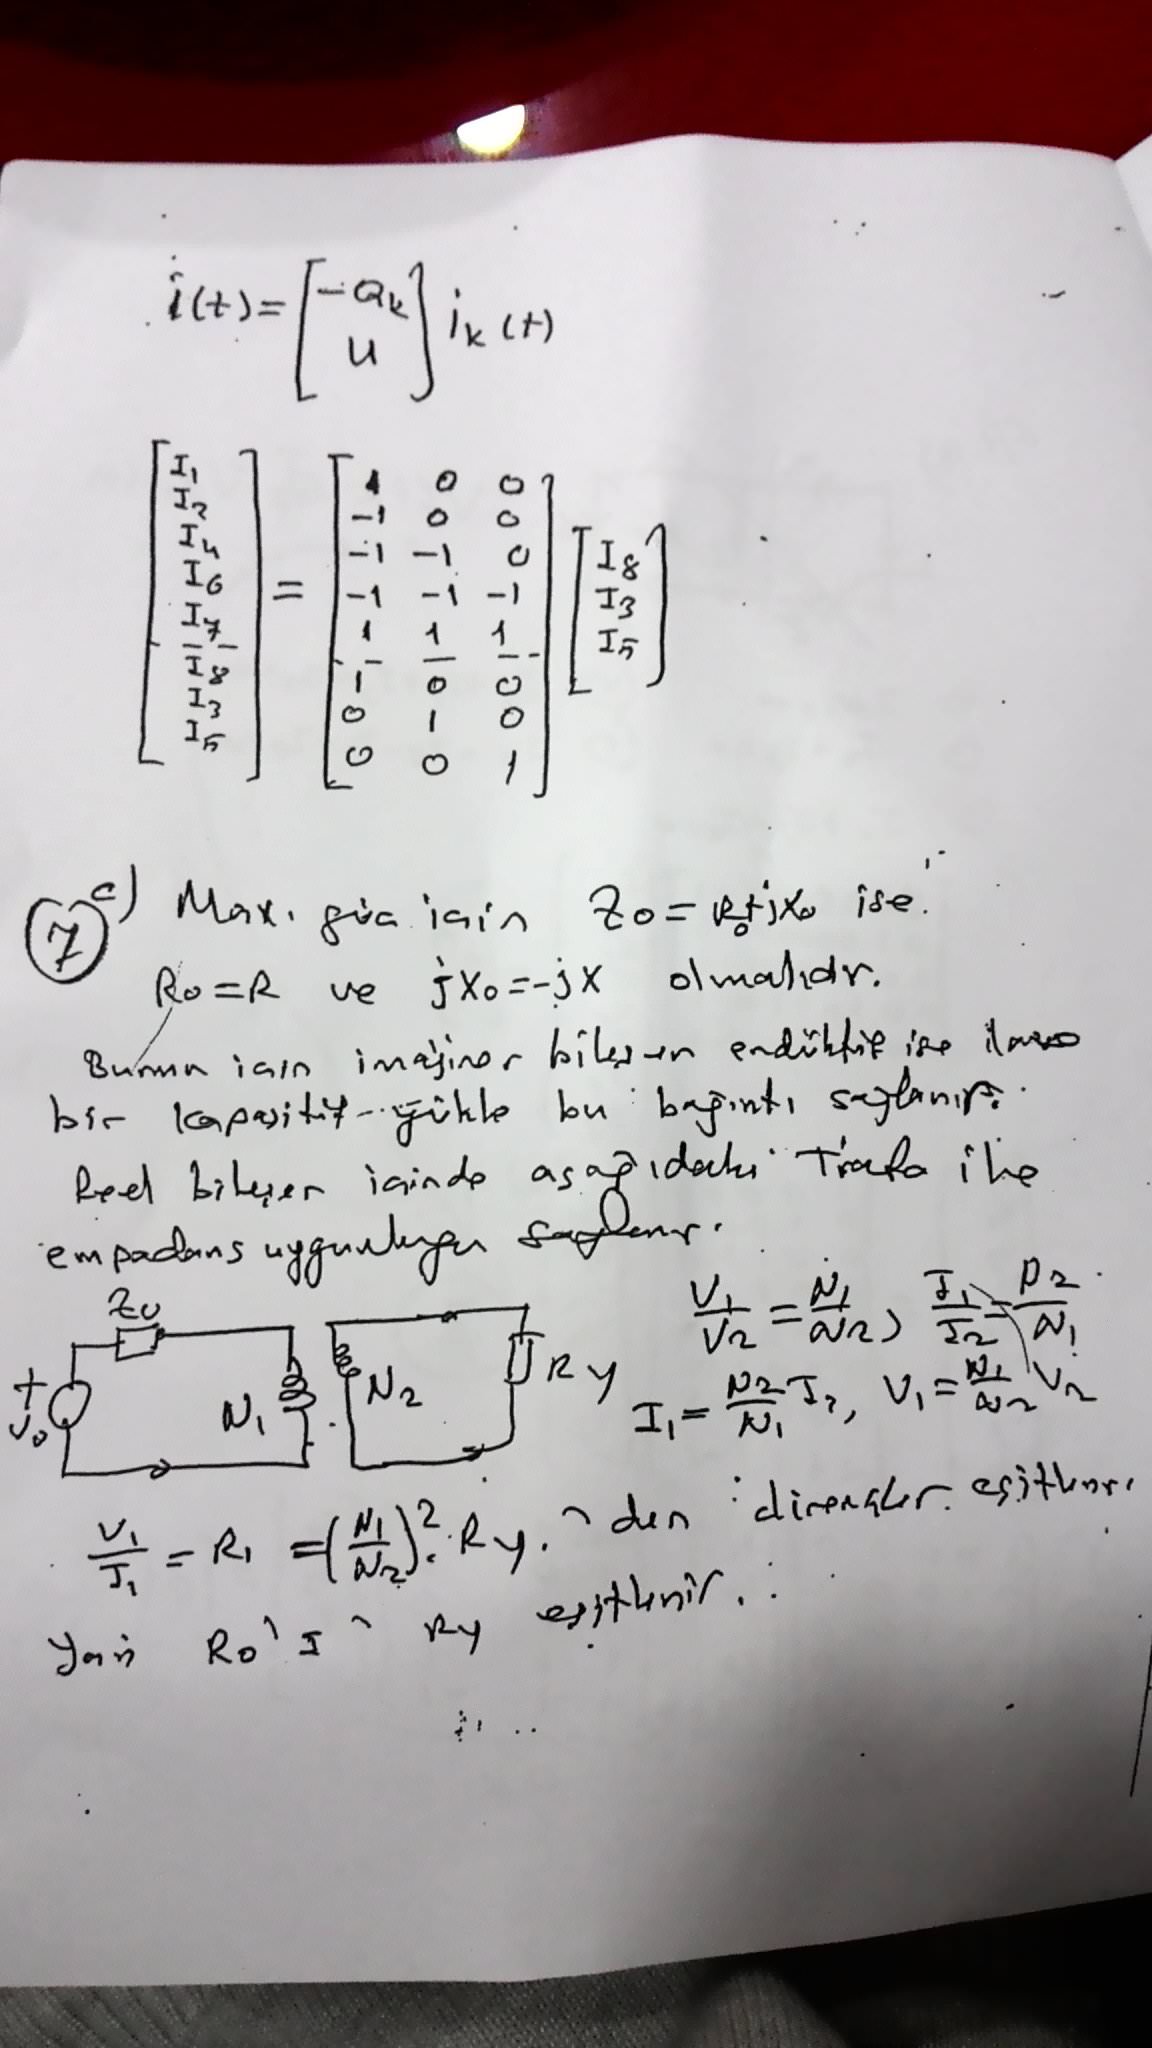 i(t) = [-Qk
U] ik(t)
[I1 I2 I4 I6 I7 I8 I3 I5] =
1 0 0
-1 0 0
-1 -1 0
-1 -1 -1
1 1 1
1 0 0
0 1 0
0 0 1
[I8 I3 I5]
7 c) Max. güç için Z0 = R0+jX0 ise
R0 = R ve jX0 = -jX olmalıdır.
Bunun için imajiner bileşen endüktif ise
bir kapasitif yükle bu bağıntı sağlanır.
Reel bileşen içinde aşağıdaki Trafo ile
empadans uygunluğu sağlanır.
Z0
V1/V2 = N1/N2, I1/I2 = N2/N1
+ V0 N1 N2 Ry
I1 = N2/N1 I2, V1 = N1/N2 V2
V1/I1 = R1 = (N1/N2)². Ry. den dirençler eşitlenir.
Yani R0'ı Ry eşitlenir.